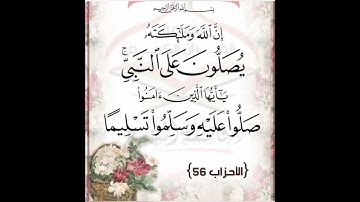 بسم الله الرحمن الرحيم
إِنَّ ٱللَّهَ وَمَلَٰٓئِكَتَهُۥ
يُصَلُّونَ عَلَى ٱلنَّبِيِّ ۚ
يَٰٓأَيُّهَا ٱلَّذِينَ ءَامَنُوا۟
صَلُّوا۟ عَلَيْهِ وَسَلِّمُوا۟ تَسْلِيمًا
{الأحزاب 56}